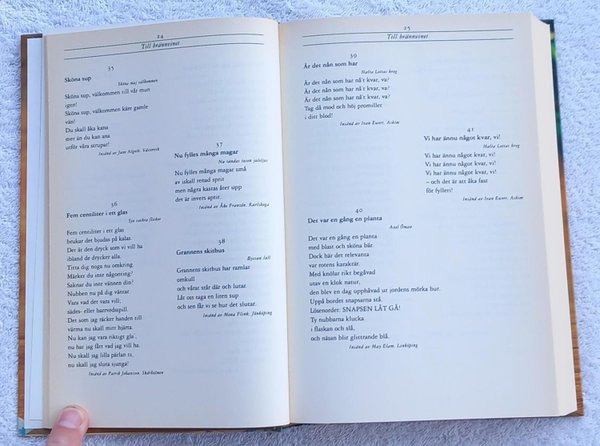 24
Till brännvinet
35
Sköna sup
Sköna maj välkommen
Sköna sup, välkommen till vår mun
igen!
Sköna sup, välkommen käm gamle
vän!
Du skall åka kana
mer än du kan ana
utför våra strupar!
Insänd av
36
Fem centiliter i ett glas
Sju vackra flickor
Fem centiliter i ett glas
brukar det bjudas på kalas.
Det är den dryck som vi vill ha
ibland de drycker alla.
Titta dig noga nu omkring.
Märker du inte någonting?
Saknar du inte vännen din?
Nubben nu på dig väntar.
Vara vad det vara vill;
sädes- eller barrvedspill.
Det som jag räcker handen till
värma nu skall mitt hjärta.
Nu kan jag vara riktigt glad,
nu har jag fått vad jag vill ha.
Nu skall jag lilla pärlan ta,
nu skall jag sluta sjunga!
Insänd av Patrik Johansson, Skärholmen
37
Nu fylles många magar
Nu tändas tusen juleljus
Nu fylles många magar små
av iskall renad sprit
men några kastas åter upp
det är invers aptit.
Insänd av Åke Franzén, Karlskoga
38
Grannens skithus
Byssan lull
Grannens skithus har ramlat
omkull
och vårat står där och lutar.
Låt oss taga en liten sup
och sen får vi se hur det slutar.
Insänd av Mona Flink, Jönköping
25
Till brännvinet
39
Är det nån som har
Halta Lottas krog
Är det nån som har nå't kvar, va?
Är det nån som har nå't kvar, va?
Är det nån som har nå't kvar, va?
Tag då mod och höj promillet
i ditt blod!
Insänd av Ivan Ewert, Askim
40
Det var en gång en planta
Axel Öman
Det var en gång en planta
med blast och sköna bär.
Dock här det relevanta
var rotens karaktär.
Med knölar rikt begåvad
utav en klok natur,
den blev en dag upphåvad ur jordens mörka bur.
Uppå bordets snapsarna stå.
Lösenorder: SNAPSEN LÅT GÅ!
Ty nubbarna klucka
i flaskan och slå,
och näsan blir glittrande blå.
Insänd av May Elam, Linköping
41
Vi har ännu något kvar, vi!
Halta Lottas krog
Vi har ännu något kvar, vi!
Vi har ännu något kvar, vi!
Vi har ännu något kvar, vi!
– och det är att åka fast
för fylleri!
Insänd av Ivan Ewert, Askim